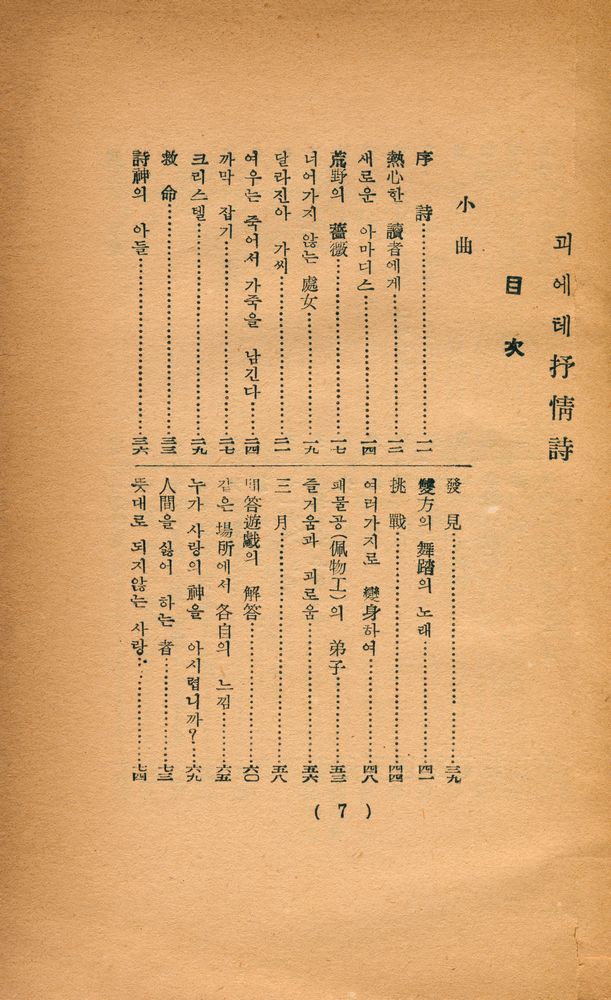 괴에테抒情詩
目次
小曲
序詩……一一
熱心한 讀者에게……一二
새로운 아마디스……一四
荒野의 薔薇……一七
너어가지 않는 處女……一九
달라진아 가씨……二一
여우는 죽어서 가죽을 남긴다……二四
까막 잡기……二七
크리스텔……二九
救命……三三
詩神의 아들……三六
發見……三九
雙方의 舞踏의 노래……四一
挑戰……四四
여러가지로 變身하여……四八
패물공(佩物工)의 弟子……五三
즐거움과 괴로움……五六
三月……五八
問答遊戱의 解答……六〇
같은 場所에서 各自의 느낌……六五
누가 사랑의 神을 아시렵니까?……六九
人間을 싫어 하는 者……七三
뜻대로 되지않는 사랑……七四
(7)